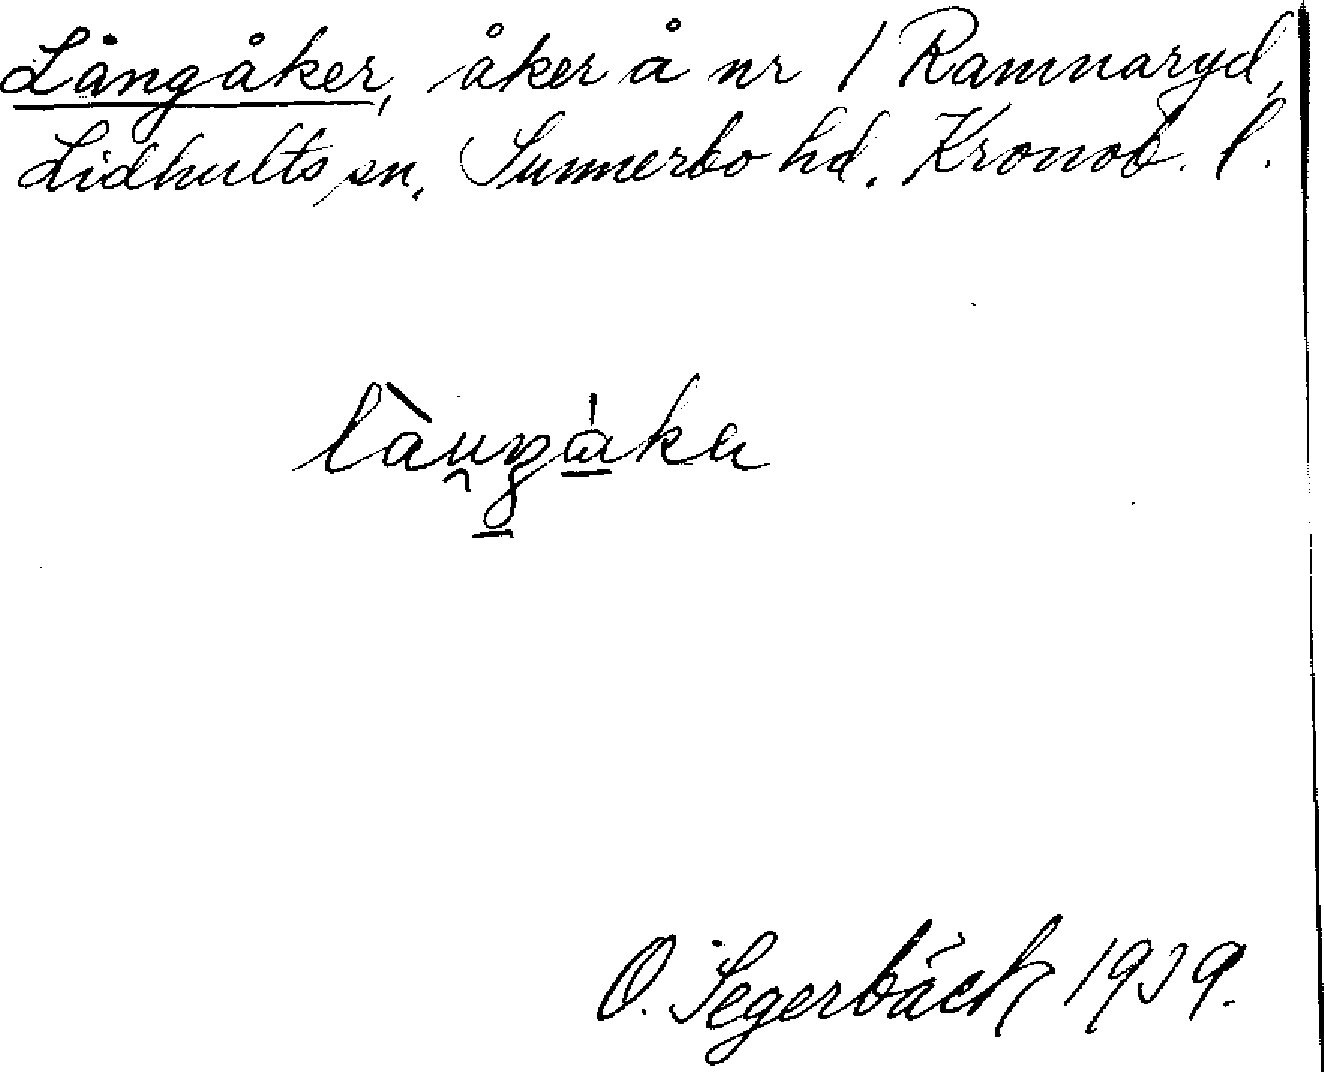 Långåker, åker å nr 1 Ramnaryd,
Lidhults sn, Sunnerbo hd, Kronob. l.
O. Segerbäck 1939.